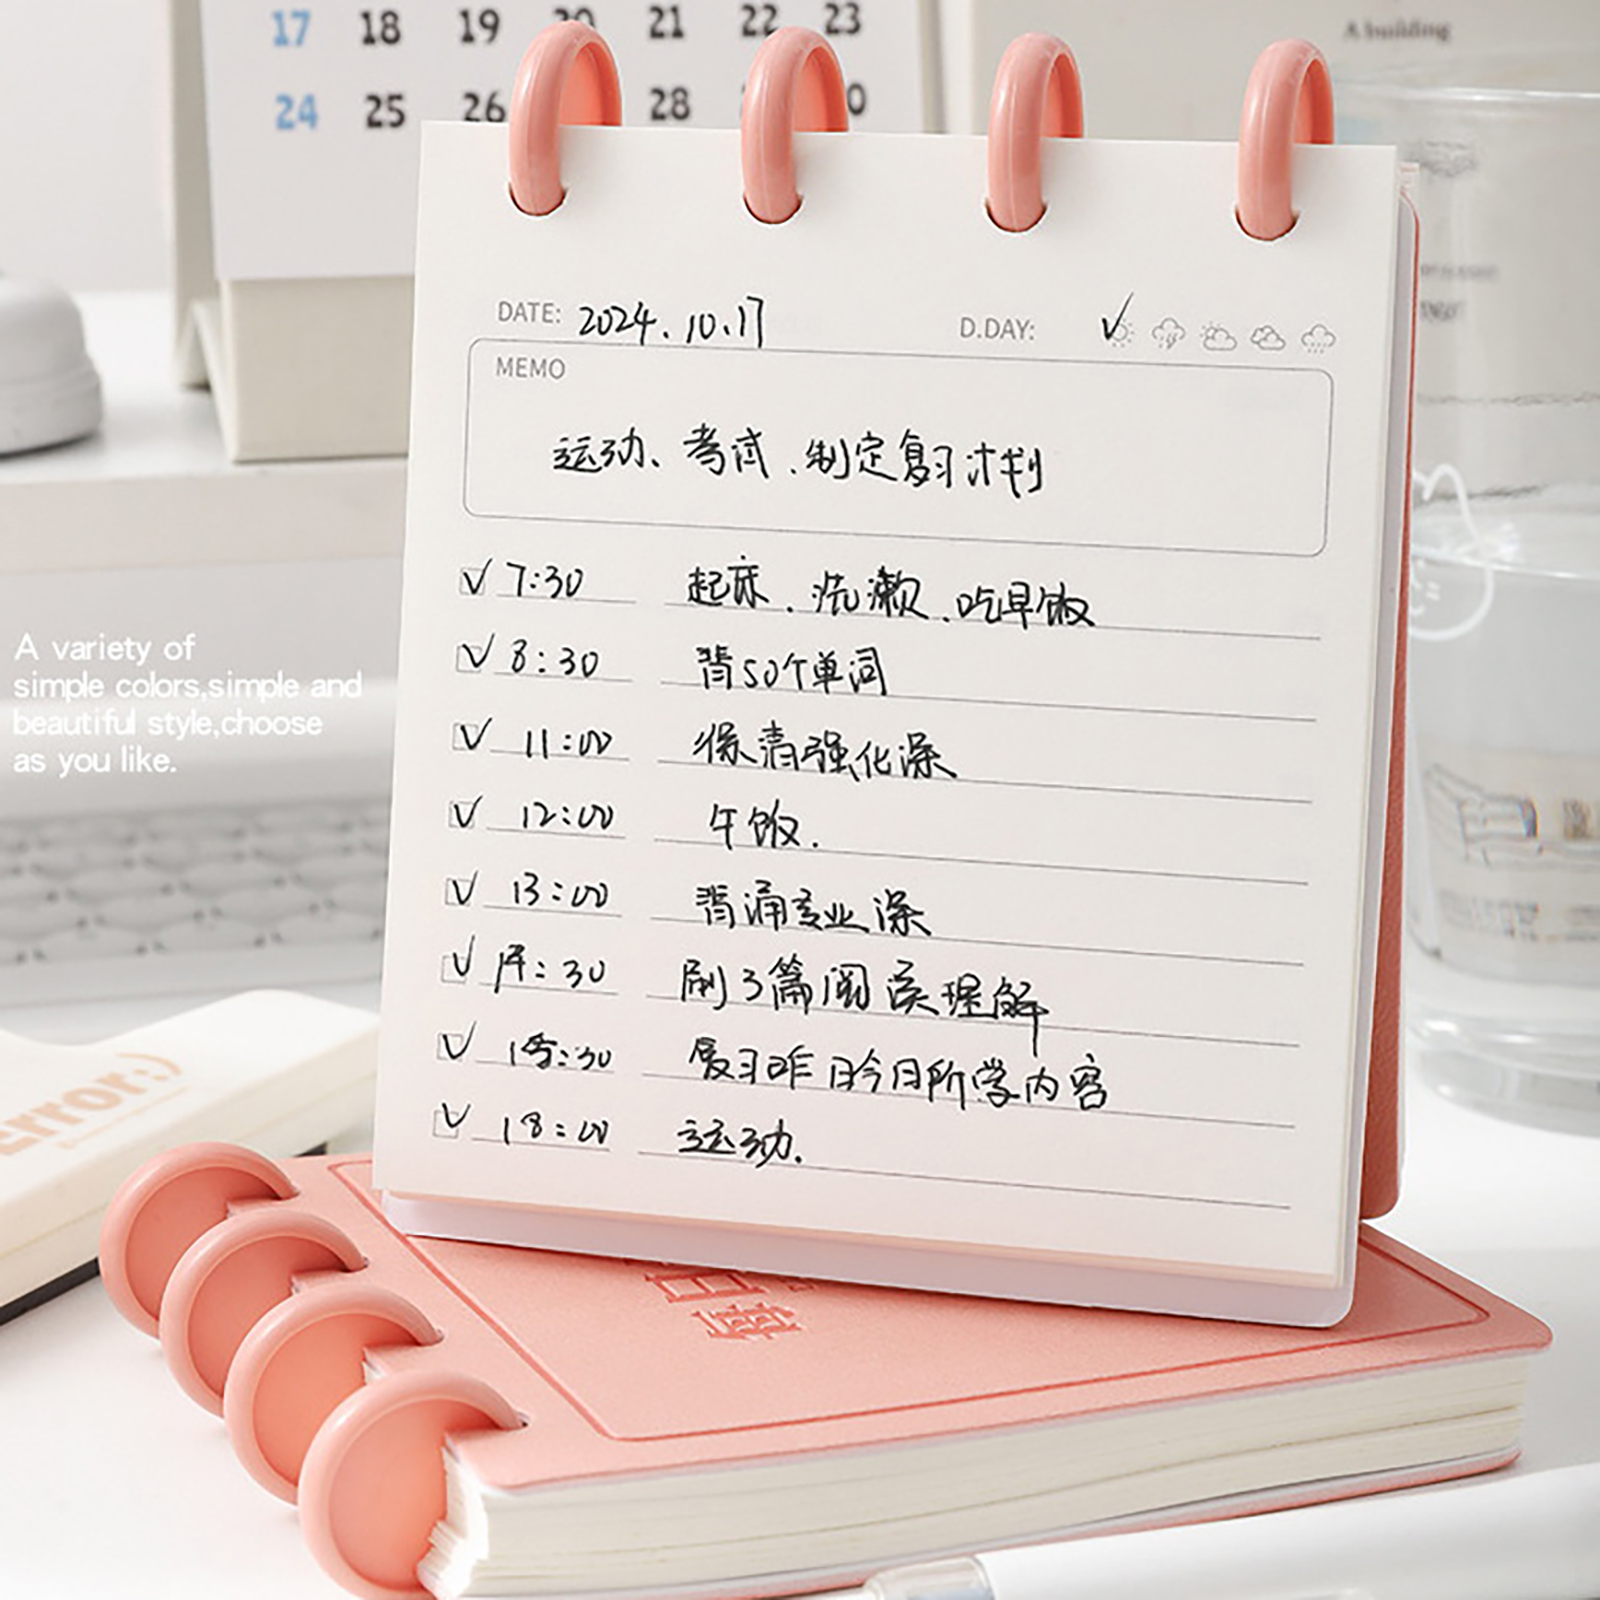 17 18 19 20 21 22 23
24 25 26 28
A building
DATE: 2024.10.17 D.DAY:
MEMO
运动、考试、制定复习计划
7:30 起床、洗漱、吃早饭
8:30 背50个单词
11:00 听清强化课
12:00 午饭.
13:00 背诵专业课
14:30 刷3篇阅读理解
15:30 复习昨日今日所学内容
18:00 运动.
A variety of
simple colors,simple and
beautiful style,choose
as you like.
Error:)